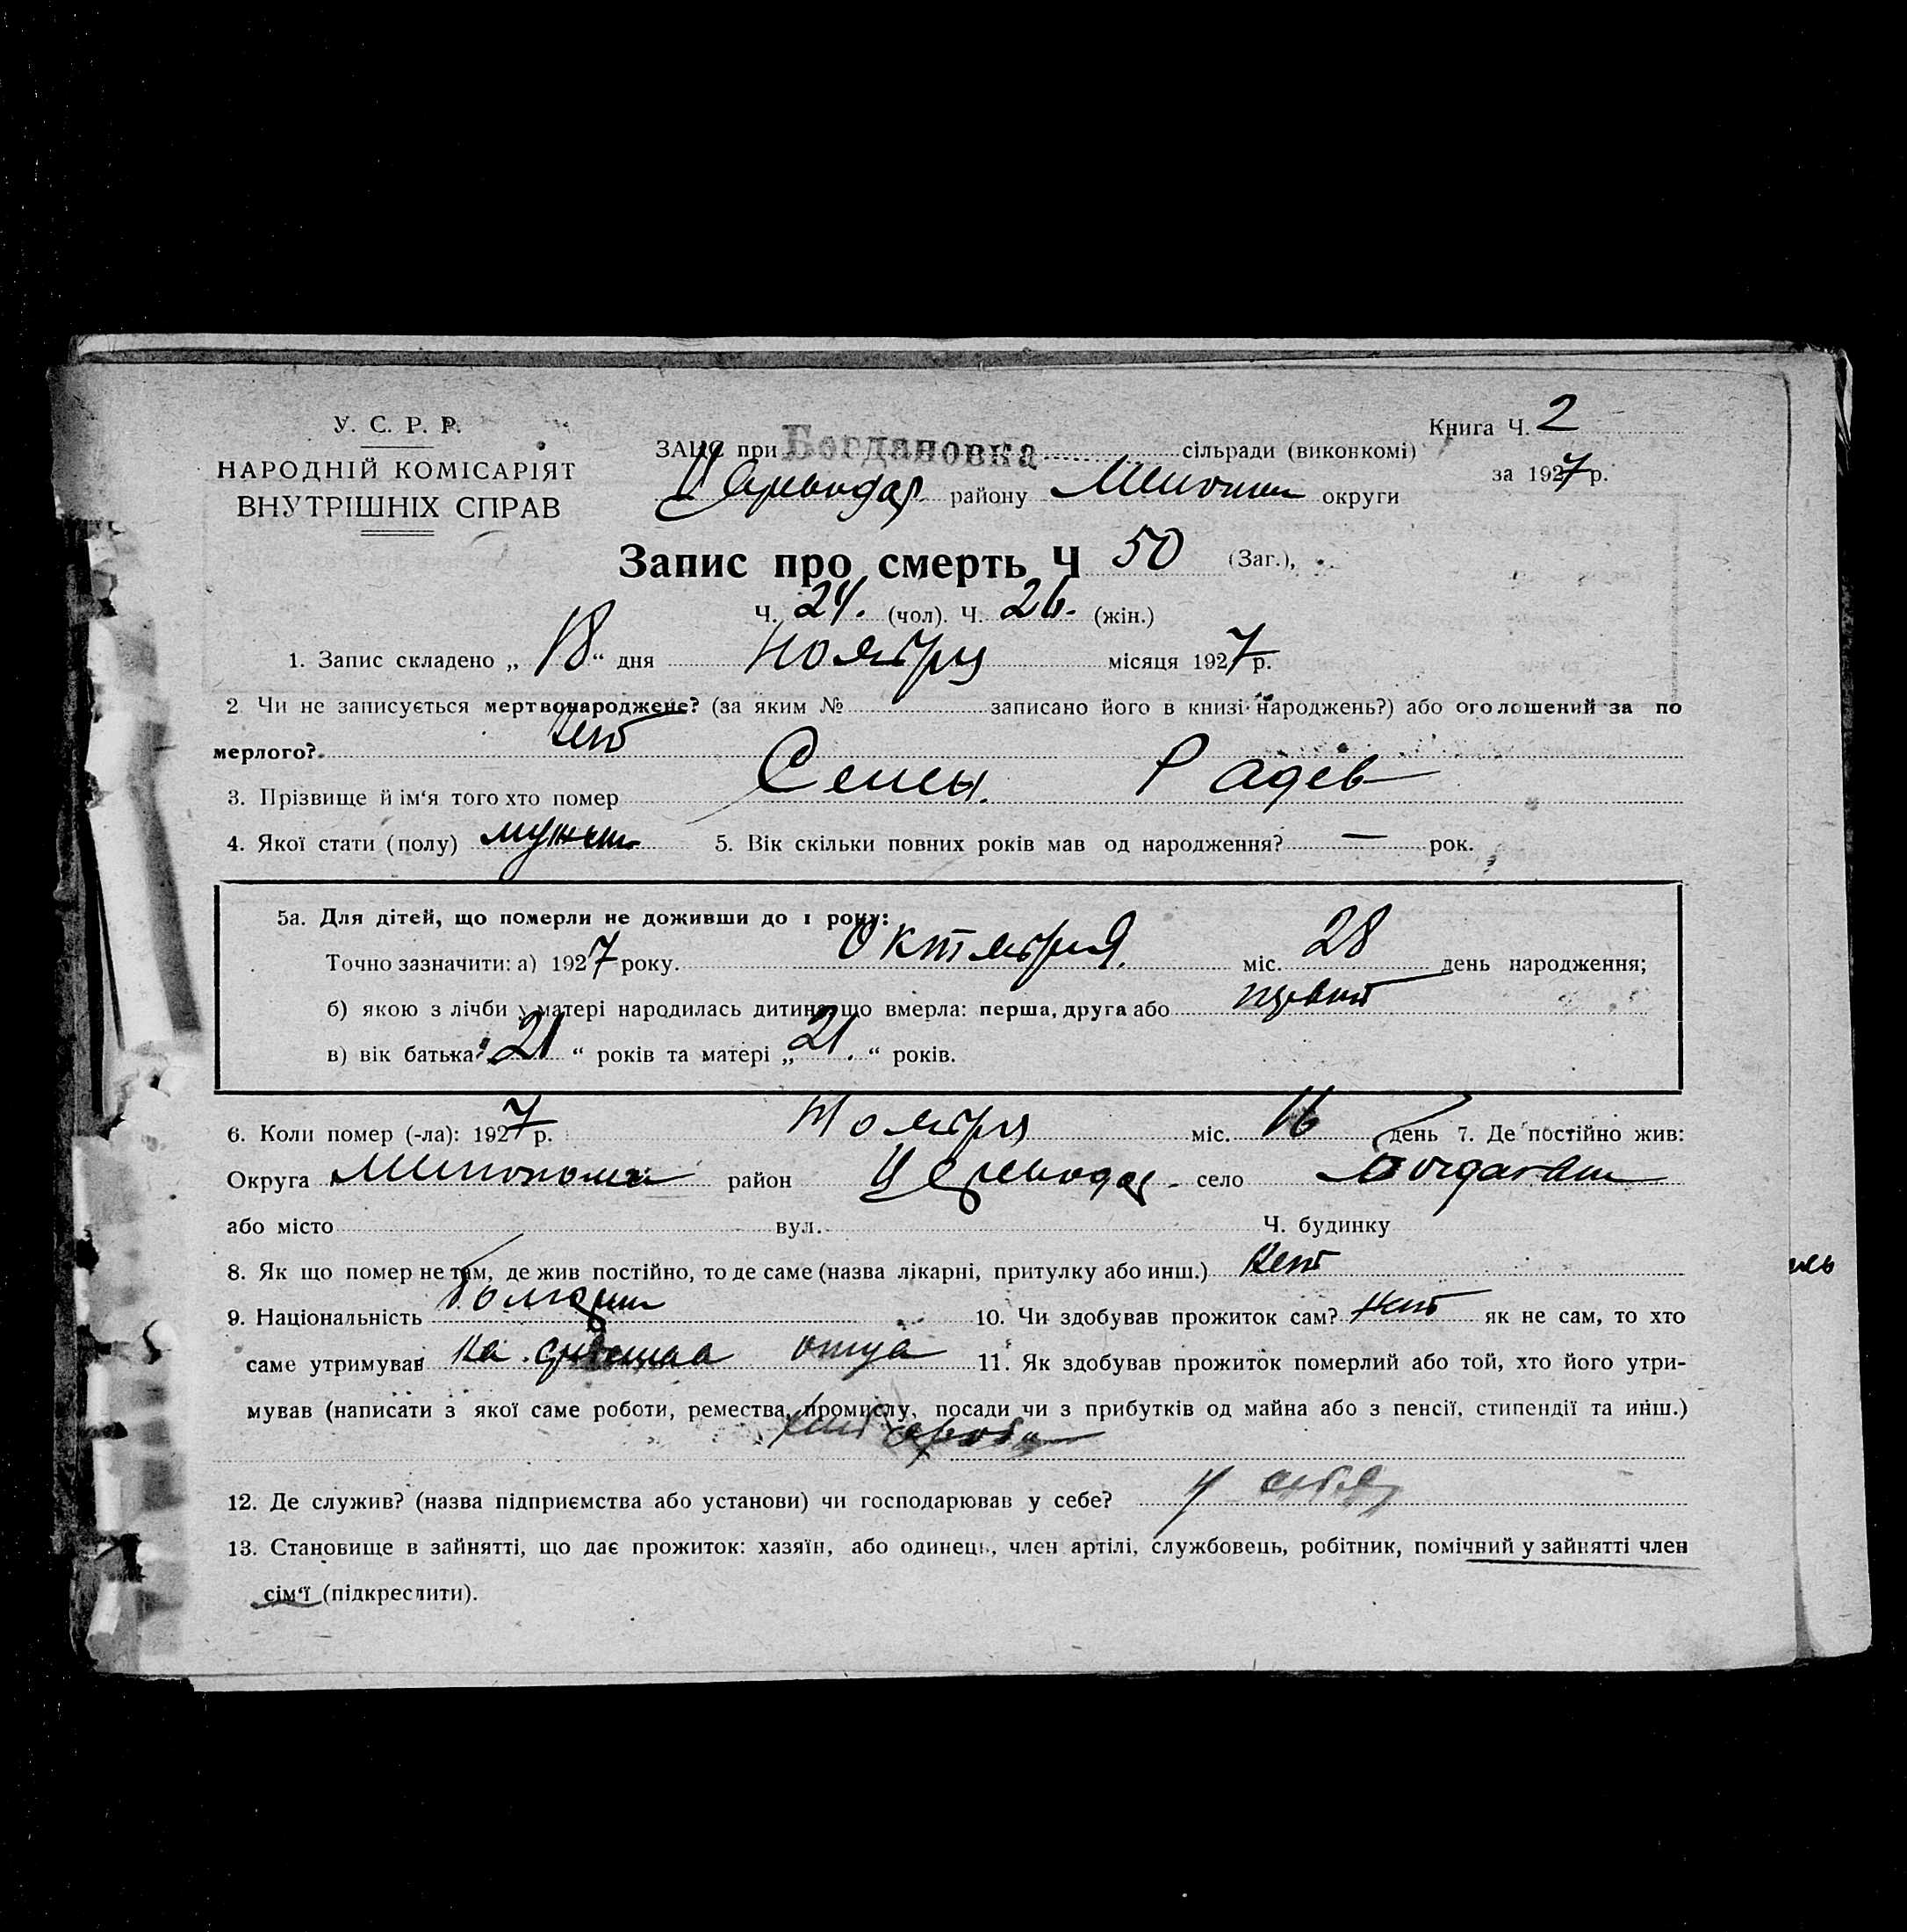 У. С. Р. Р.
НАРОДНІЙ КОМІСАРІЯТ
ВНУТРІШНІХ СПРАВ
Книга Ч. 2
за 1927 р.
ЗАЦС при Богдановка сільради (виконкомі)
району округи
Запис про смерть Ч 50 (Заг.),
Ч. 24. (чол). Ч. 26. (жін.)
1. Запис складено „ 18 “ дня ноября місяця 1927 р.
2 Чи не записується мертвонароджене? (за яким № записано його в книзі народжень?) або оголошений за по
мерлого? нет
3. Прізвище й ім‘я того хто помер Радев
4. Якої стати (полу) мужск 5. Вік скільки повних років мав од народження? — рок.
5а. Для дітей, що померли не доживши до 1 року:
Точно зазначити: а) 1927 року. Октября. міс. 28 день народження;
б) якою з лічби у матері народилась дитина що вмерла: перша, друга або
в) вік батька „ 21 “ років та матері „ 21. “ років.
6. Коли помер (-ла): 1927 р. Ноября міс. 16 день 7. Де постійно жив:
Округа район село
або місто вул. Ч. будинку
8. Як що помер не там, де жив постійно, то де саме (назва лікарні, притулку або инш.) нет
9. Національність болгарин 10. Чи здобував прожиток сам? нет як не сам, то хто
саме утримував на отца 11. Як здобував прожиток померлий або той, хто його утри-
мував (написати з якої саме роботи, ремества, промислу, посади чи з прибутків од майна або з пенсії, стипендії та инш.)
12. Де служив? (назва підприємства або установи) чи господарював у себе? у себя
13. Становище в зайнятті, що дає прожиток: хазяїн, або одинець, член артілі, службовець, робітник, помічний у зайнятті член
сім‘ї (підкреслити).